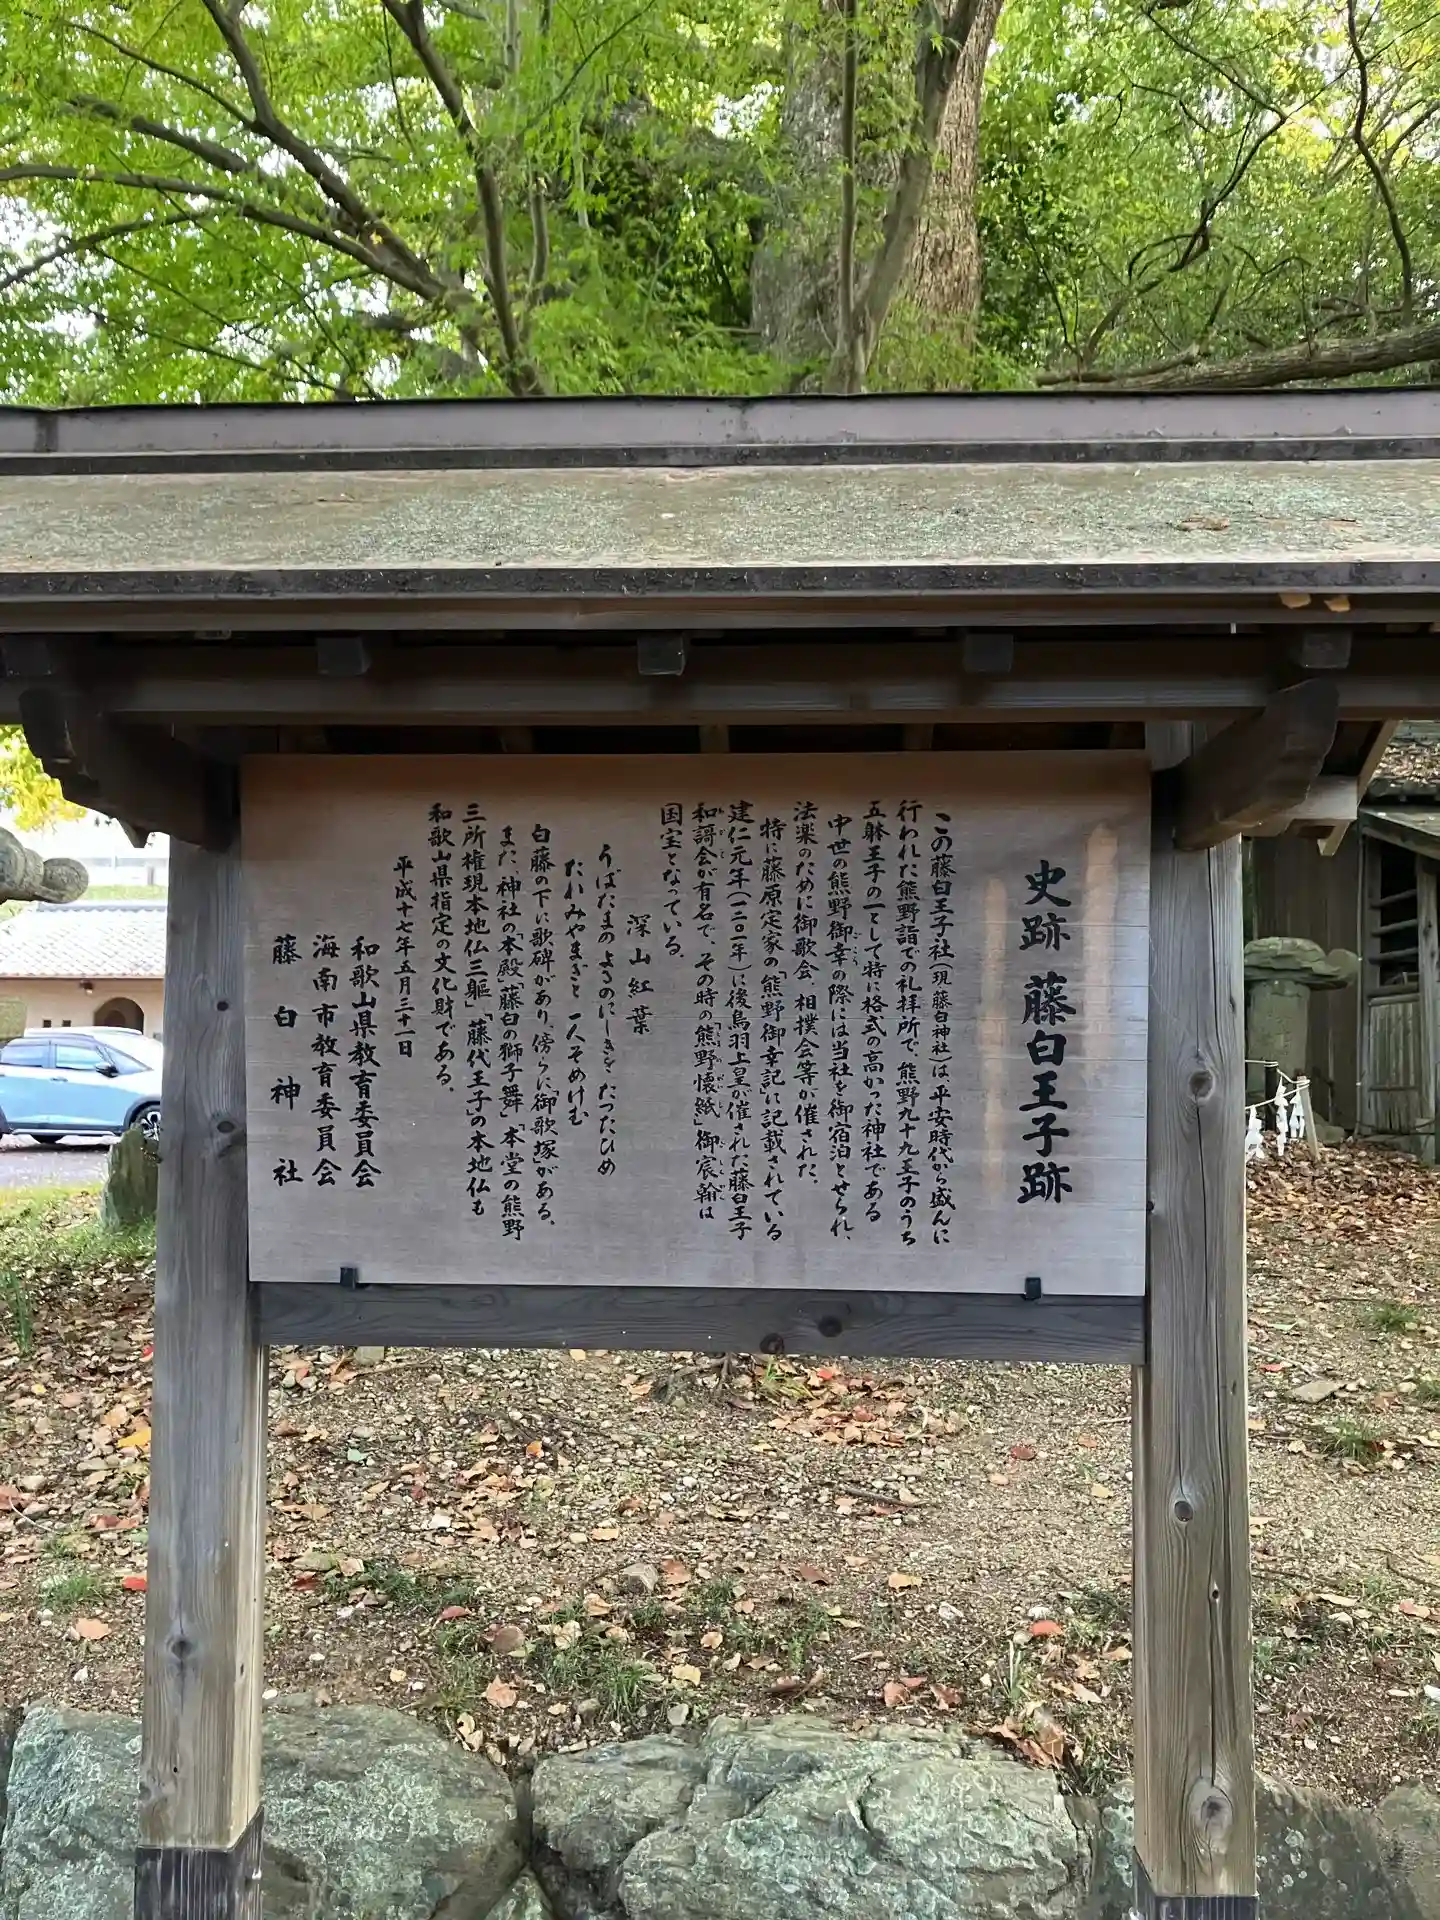 史跡 藤白王子跡
この藤白王子社(現藤白神社)は、平安時代から盛んに
行われた熊野詣での礼拝所で、熊野九十九王子のうち
五躰王子の一として特に格式の高かった神社である
中世の熊野御幸の際には当社を御宿泊とせられ、
法楽のために御歌会、相撲会等が催された。
特に藤原定家の「熊野御幸記」に記載されている
建仁元年(一二〇一年)に後鳥羽上皇が催された藤白王子
和謌会が有名で、その時の「熊野懐紙」御宸翰は
国宝となっている。
深山紅葉
うばたまのよるのにしきをたつたひめ
たれみやまぎと一人そめけむ
白藤の下に歌碑があり、傍らに御歌塚がある。
また、神社の「本殿」「藤白の獅子舞」「本堂の熊野
三所権現本地仏三躯」「藤代王子」の本地仏も
和歌山県指定の文化財である。
平成十七年五月三十一日
和歌山県教育委員会
海南市教育委員会
藤白神社